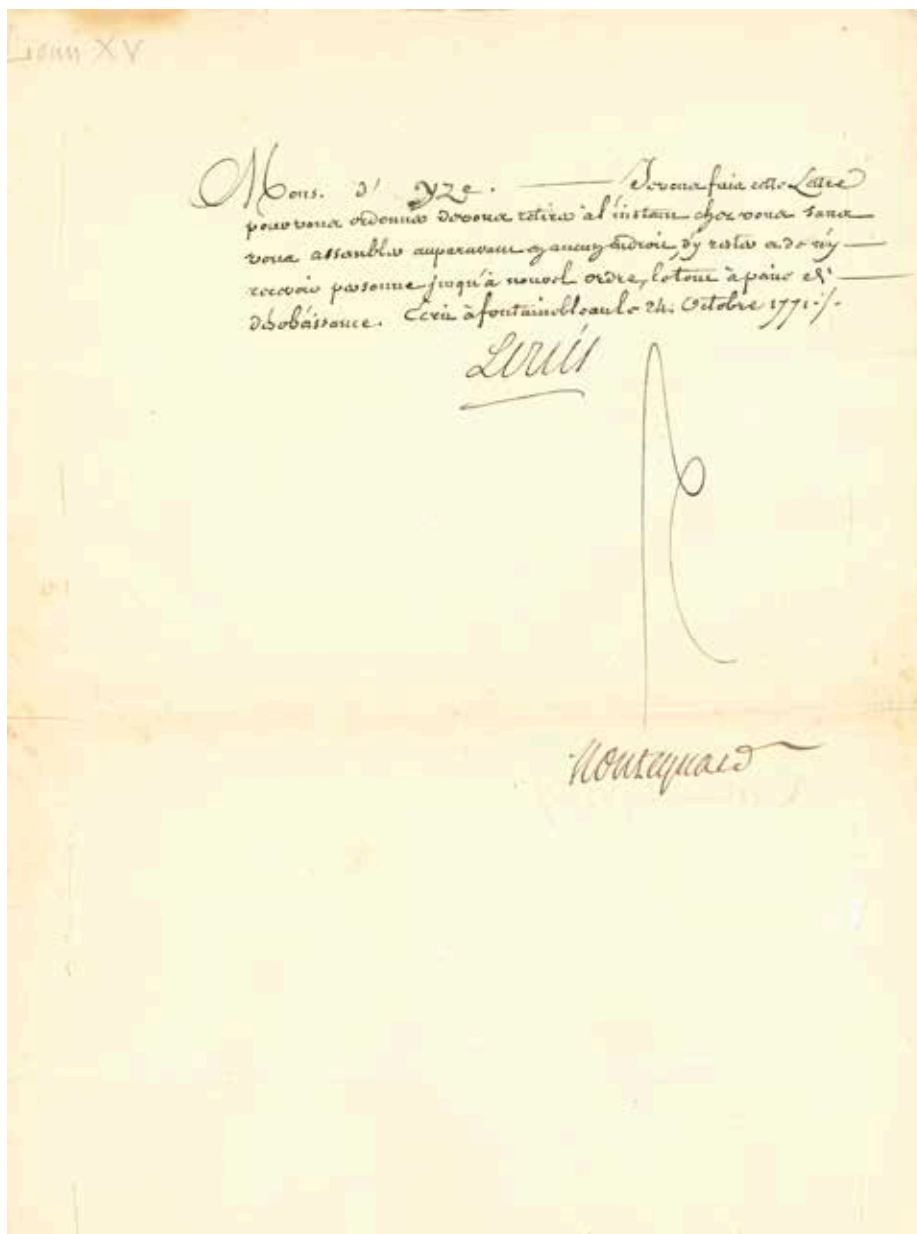 Louis XV
Mons. d' Yze. Je vous fais cette Lettre
pour vous ordonner de vous retirer à l'instant chez vous sans
vous assembler auparavant en aucun endroit, d'y rester et de n'y
recevoir personne jusqu'à nouvel ordre, le tout à peine de
désobéissance. Ecrit à fontainebleau le 24. Octobre 1771./.
Louis
Monteynard